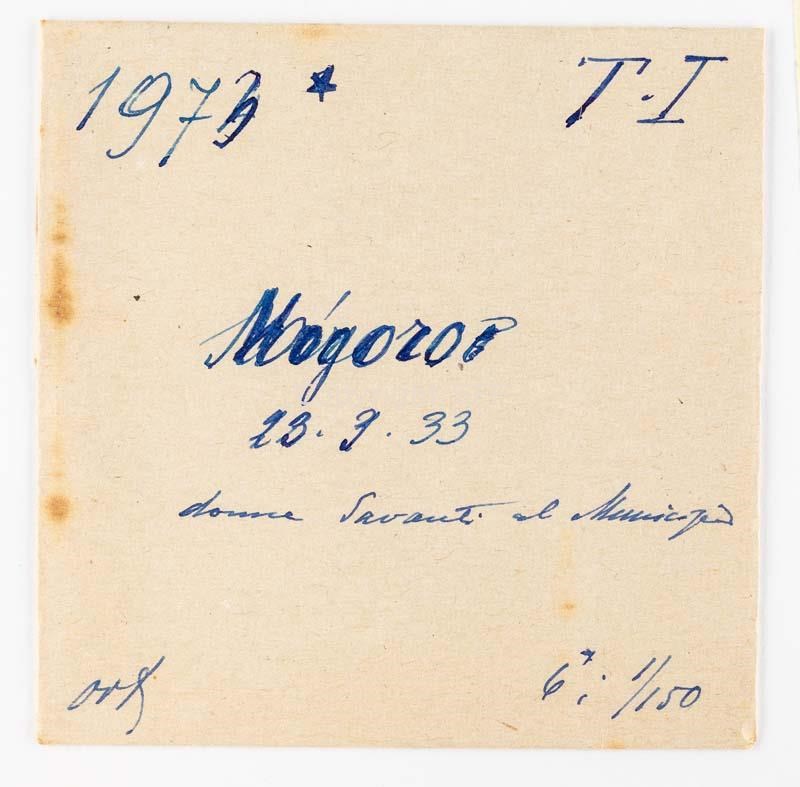 1973 * T.I
Mógoro
23.9.33
donne davanti al Municipio
ort 6*; 1/150